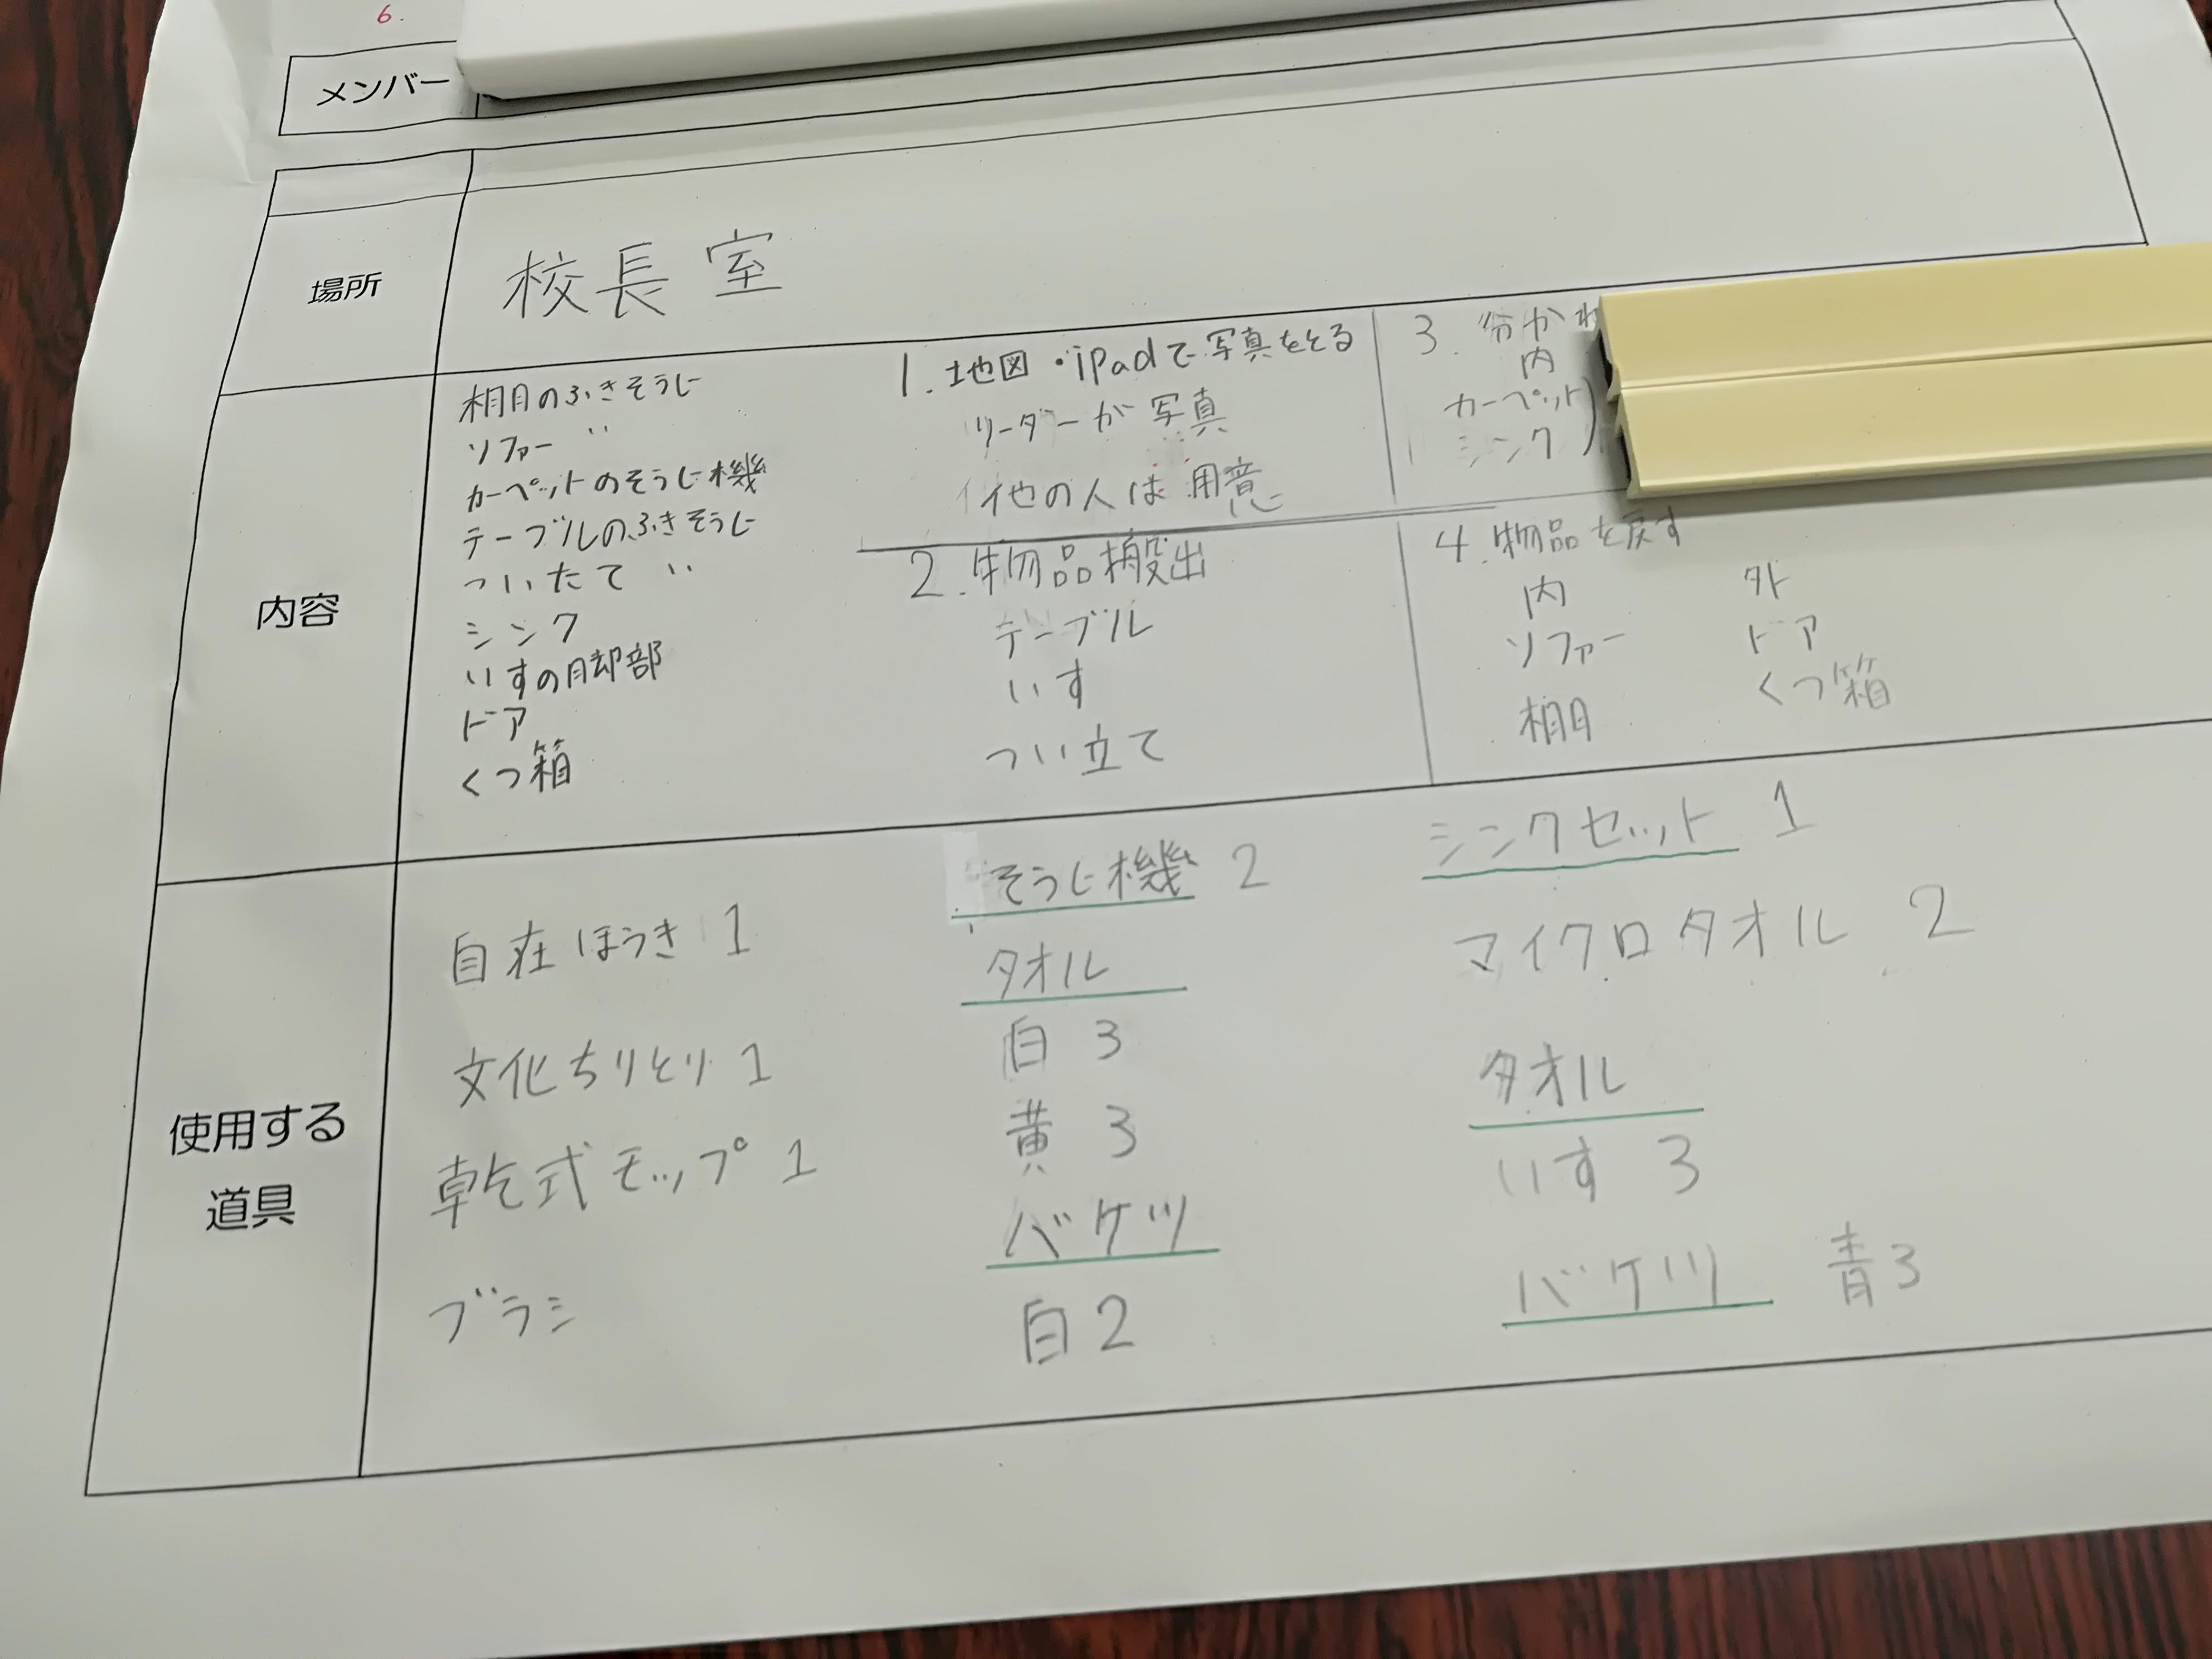 6.
メンバー
場所
校長室
内容
棚のふきそうじ
ソファー 〃
カーペットのそうじ機
テーブルのふきそうじ
ついたて 〃
シンク
いすの脚部
ドア
くつ箱
1. 地図・iPadで写真をとる
リーダーが写真
他の人は用意
2. 物品搬出
テーブル
いす
つい立て
3. 分かれ
内
カーペット
シンク
4. 物品を戻す
内 外
ソファー ドア
棚 くつ箱
使用する
道具
自在ほうき 1
文化ちりとり 1
乾式モップ 1
ブラシ
そうじ機 2
タオル
白 3
黄 3
バケツ
白 2
シンクセット 1
マイクロタオル 2
タオル
いす 3
バケツ 青3